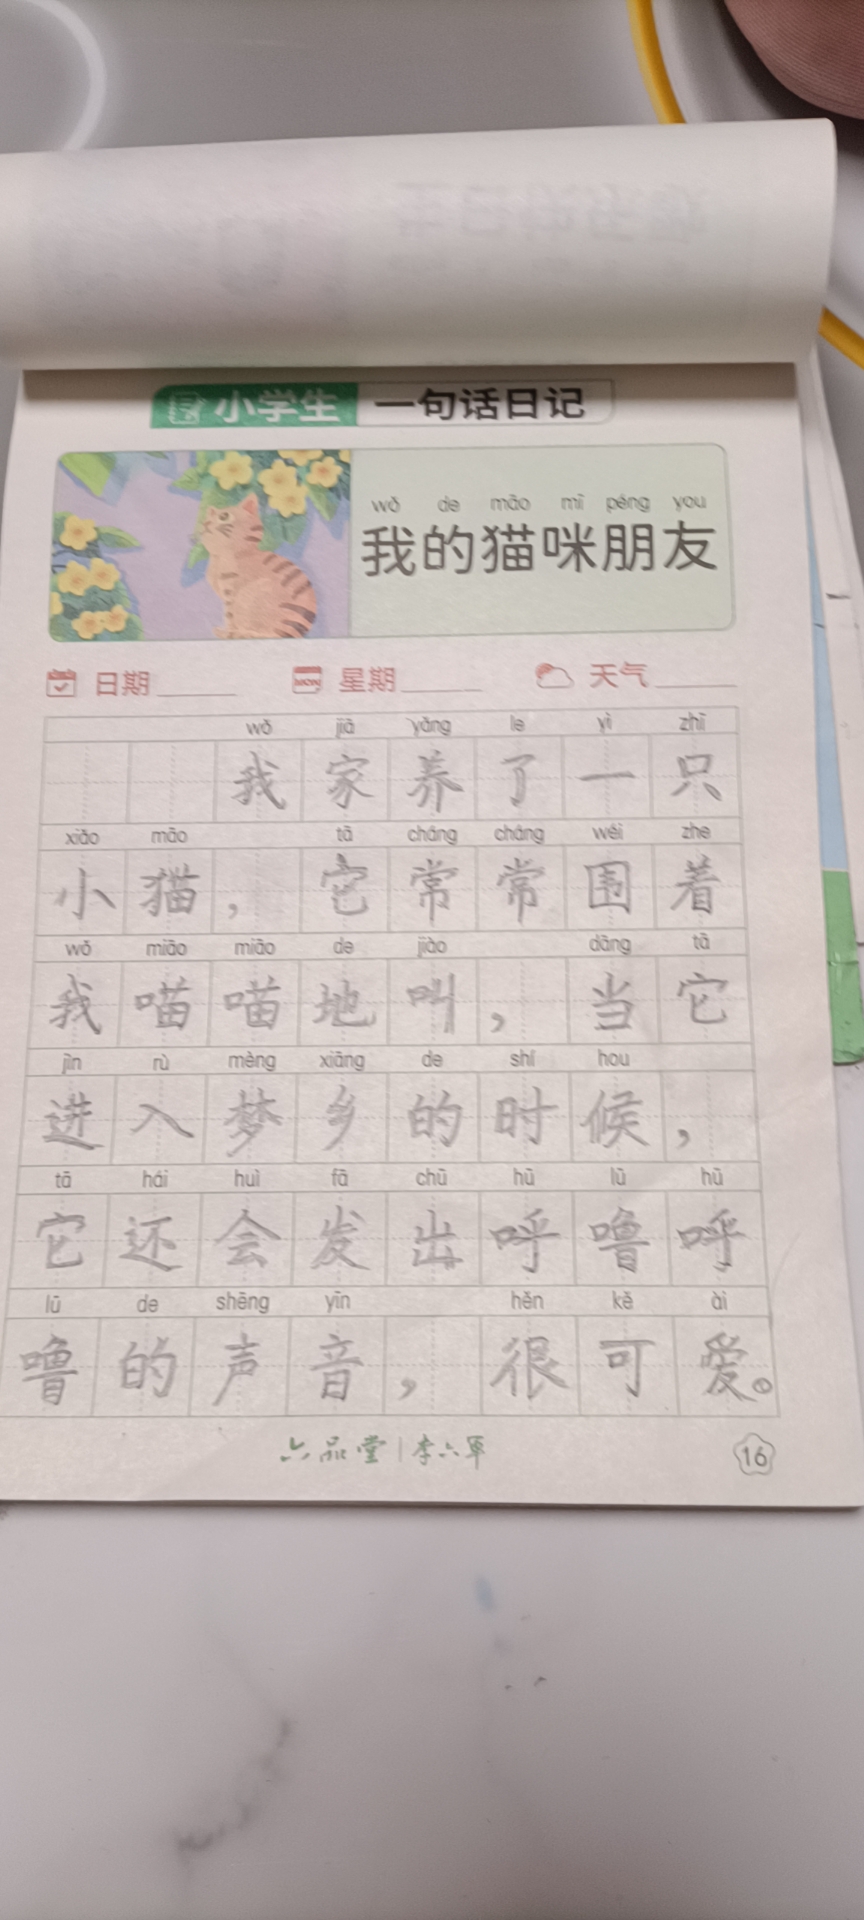 小学生 一句话日记
wǒ de māo mī péng you
我的猫咪朋友
日期 MON 星期 天气
wǒ jiā yǎng le yì zhī
我家养了一只
xiǎo māo tā cháng cháng wéi zhe
小猫，它常常围着
wǒ miāo miāo de jiào dāng tā
我喵喵地叫，当它
jìn rù mèng xiāng de shí hou
进入梦乡的时候，
tā hái huì fā chū hū lū hū
它还会发出呼噜呼
lū de shēng yīn hěn kě ài
噜的声音，很可爱。
六品堂 | 李六军 16